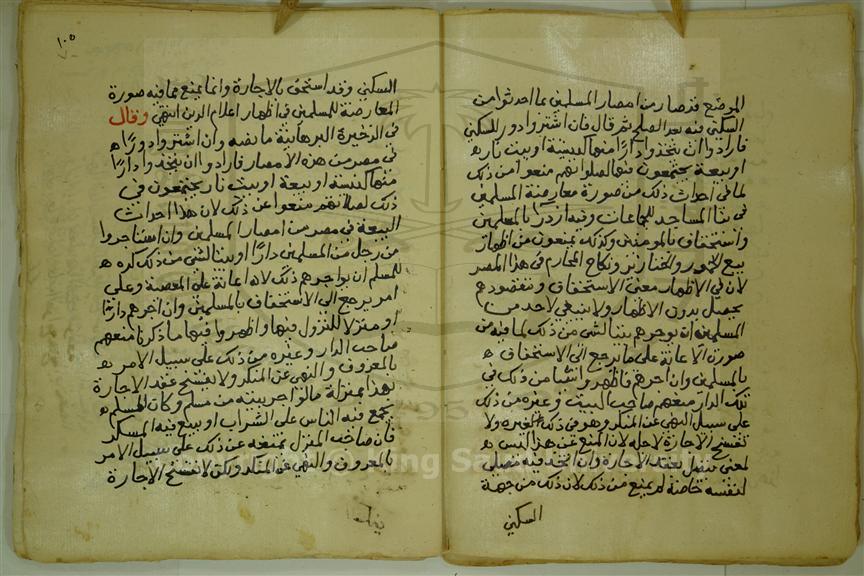 الموضع قد صار من امصار المسلمين بما احدثوا من
السكنى فيه بعد الصلح ثم قال فان اشتروا دور للسكنى
فارادوا ان يتخذوا دارًا منها كنيسة او بيت نار
او بيعة يجتمعون فيها لصلواتهم منعوا من ذلك
لما فى احداث ذلك من صورة معارضة المسلمين
فى بنا المساجد للجماعات وفيه ازدراء بالمسلمين
واستخفاف بالمومنين وكذلك يمنعون من اظهار
بيع الخمور والخنازير ونكاح المحارم فى هذا المصر
لان فى الاظهار معنى الاستخفاف ومقصودهم
يحصل بدون الاظهار ولا ينبغى لاحد من
المسلمين ان يوجرهم بيتا لشى من ذلك لما فيه من
صورة الاعانة على ما يرجع الى الاستخفاف
بالمسلمين وان اجرهم فاظهروا شيا من ذلك فى
تلك الدار منعهم صاحب البيت وغيره من ذلك
على سبيل النهى عن المنكر وهو فى ذلك كغيره ولا
تنفسخ الاجارة لاجله لان المنع عن هذا ليس
لمعنى يتصل بعقد الاجارة وان اتخذ فيه مصلى
لنفسه خاصة لم يمنع من ذلك لان ذلك من جهة
السكنى
١٠٥
السكنى وقد استحق بالاجارة وانما يمنع مما فيه صورة
المعارضة للمسلمين فى اظهار اعلام الدين انتهى وقال
فى الذخيرة البرهانية ما نصه وان اشتروا دورًا
فى مصر من هذه الامصار فارادوا ان يتخذوا دارًا
منها كنيسة او بيعة او بيت نار يجتمعون فى
ذلك لصلاتهم منعوا عن ذلك لان هذا احداث
البيعة فى مصر من امصار المسلمين وان استاجروا
من رجل من المسلمين دارًا او بيتا لشى من ذلك كره
للمسلم ان يواجرهم ذلك لانه اعانة على المعصية وعلى
امر يرجع الى الاستخفاف بالمسلمين وان اجرهم دارًا
او منزلا للنزول فيها واظهروا فيها ما ذكرنا منعهم
صاحب الدار وغيره من ذلك على سبيل الامر
بالمعروف والنهى عن المنكر ولا ينفسخ عقد الاجارة
بهذا بمنزلة ما لو اجر بيته من مسلم وكان المسلم
يجمع فيه الناس على الشراب او يبيع فيه المسكر
فان صاحب المنزل يمنعه عن ذلك على سبيل الامر
بالمعروف والنهى عن المنكر ولكن لا تنفسخ الاجارة